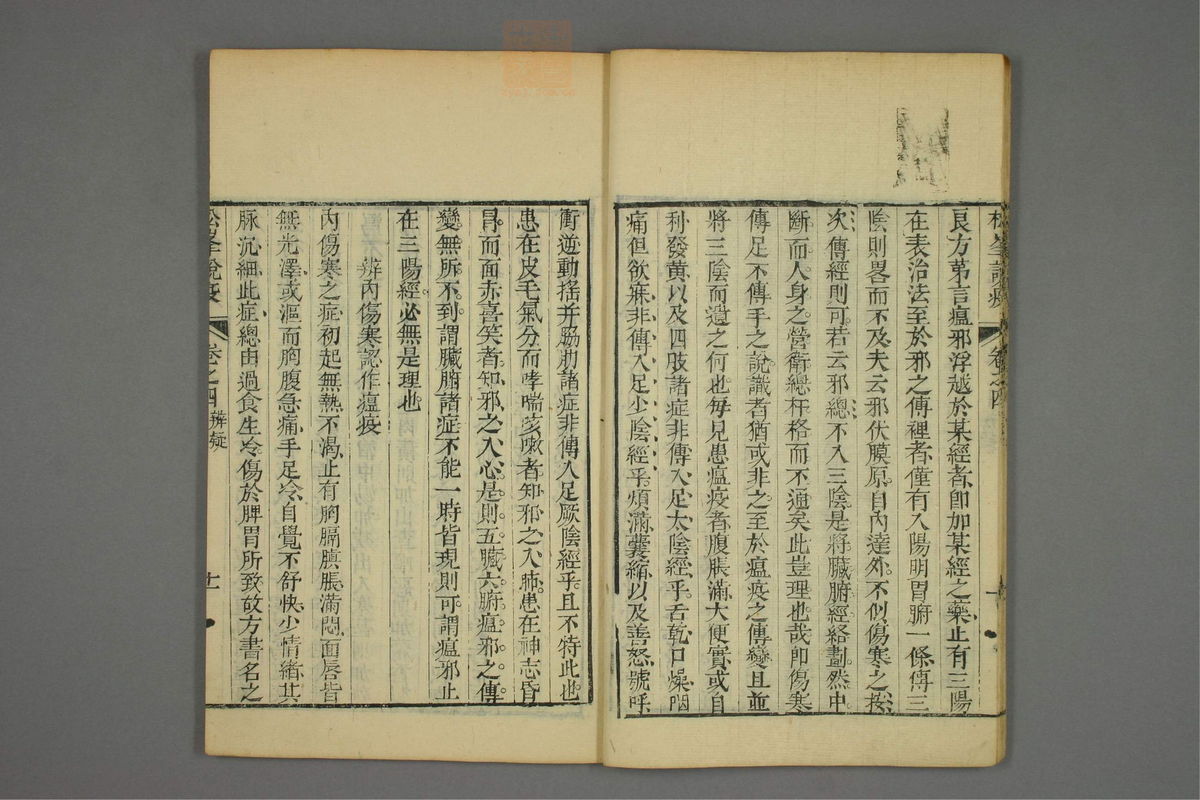 松峯說疫
卷之四
良方第言瘟邪浮越於某經者卽加某經之藥止有三陽
在表治法至於邪之傳裡者僅有入陽明胃腑一條傳三
陰則畧而不及夫云邪伏膜原自內達外不似傷寒之按
次傳經則可若云邪總不入三陰是將臟腑經絡劃然中
斷而人身之營衛總杆格而不通矣此豈理也哉卽傷寒
傳足不傳手之說識者猶或非之至於瘟疫之傳變且並
將三陰而遺之何也每見患瘟疫者腹脹滿大便實或自
利發黃以及四肢諸症非傳入足太陰經乎舌乾口燥咽
痛但欲寐非傳入足少陰經乎煩滿囊縮以及善怒號呼
衝逆動搖并脇肋諸症非傳入足厥陰經乎且不特此也
患在皮毛氣分而哮喘咳嗽者知邪之入肺患在神志昏
冒而面赤喜笑者知邪之入心是則五臟六腑瘟邪之傳
變無所不到謂臟腑諸症不能一時皆現則可謂瘟邪止
在三陽經必無是理也
辨內傷寒認作瘟疫
內傷寒之症初起無熱不渴止有胸膈䐜脹滿悶面唇皆
無光澤或漚而胸腹急痛手足冷自覺不舒快少情緒其
脉沉細此症總由過食生冷傷於脾胃所致故方書名之
松峯說疫
卷之四
辨疑
十一